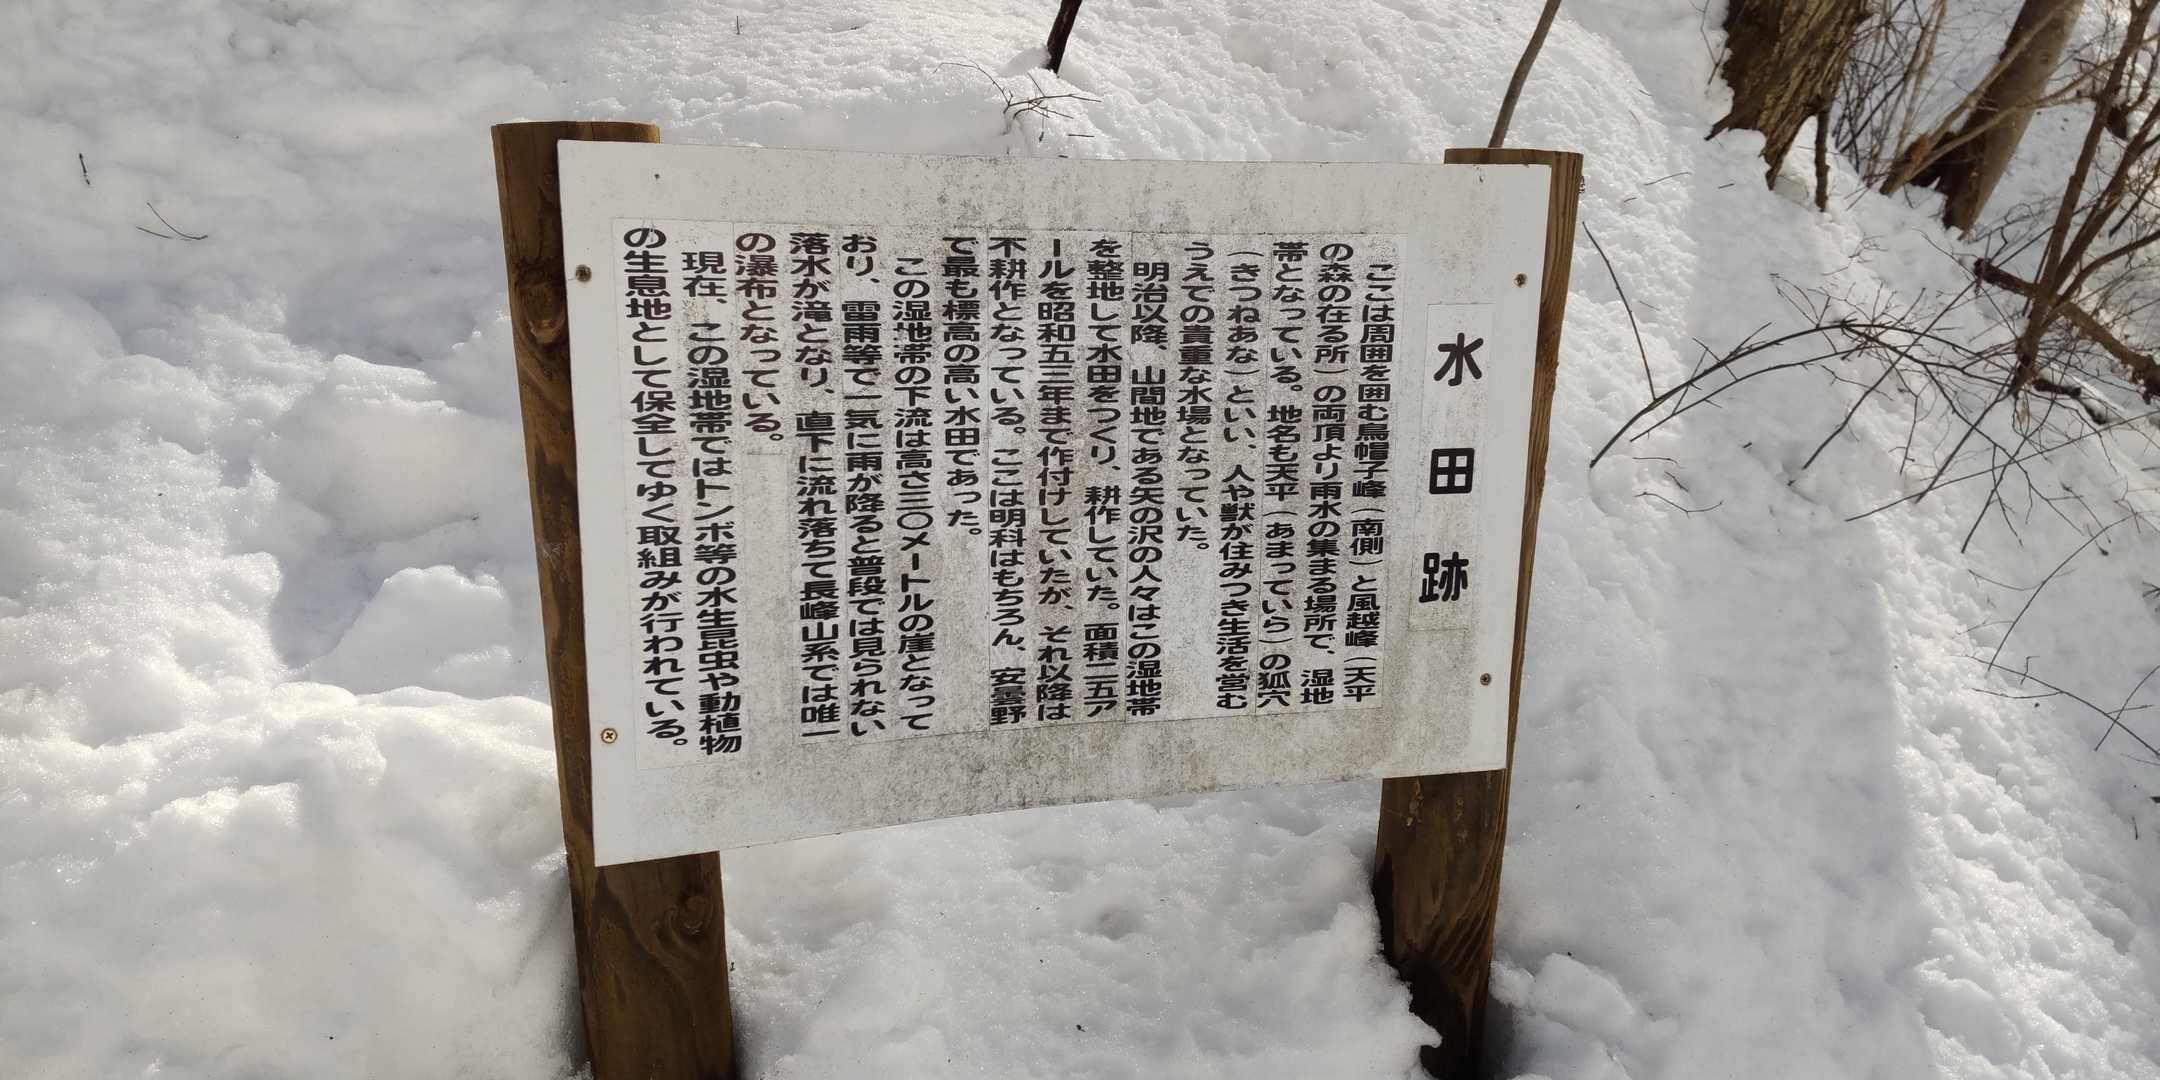 水田跡
ここは周囲を囲む烏帽子峰（南側）と風越峰（天平
の森の在る所）の両頂より雨水の集まる場所で、湿地
帯となっている。地名も天平（あまっていら）の狐穴
（きつねあな）といい、人や獣が住みつき生活を営む
うえでの貴重な水場となっていた。
明治以降、山間地である矢の沢の人々はこの湿地帯
を整地して水田をつくり、耕作していた。面積二五ア
ールを昭和五三年まで作付けしていたが、それ以降は
不耕作となっている。ここは明科はもちろん、安曇野
で最も標高の高い水田であった。
この湿地帯の下流は高さ三〇メートルの崖となって
おり、雷雨等で一気に雨が降ると普段では見られない
落水が滝となり、直下に流れ落ちて長峰山系では唯一
の瀑布となっている。
現在、この湿地帯ではトンボ等の水生昆虫や動植物
の生息地として保全してゆく取組みが行われている。